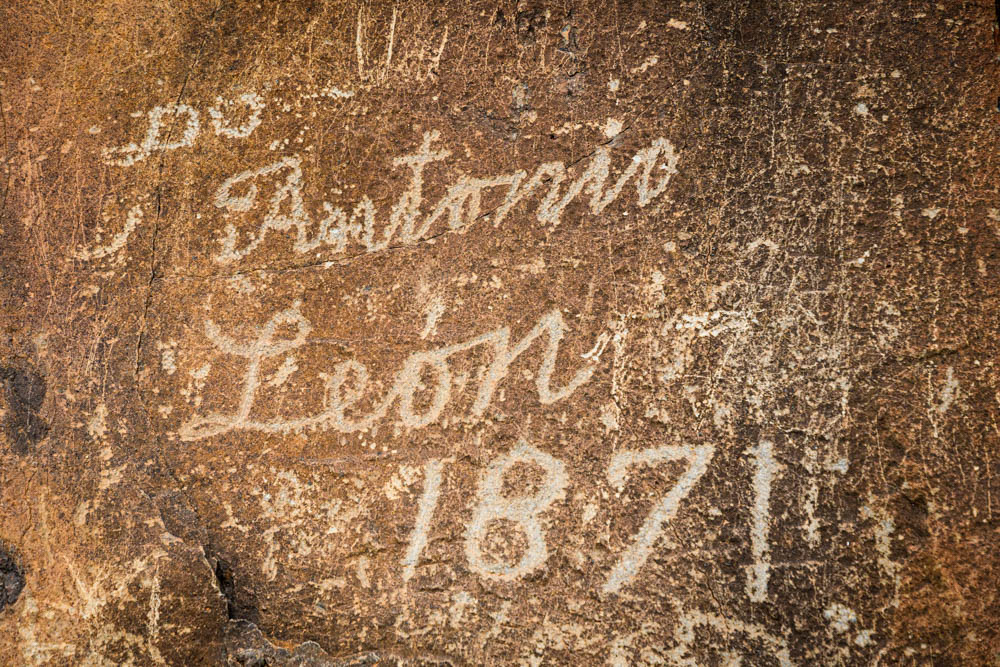 Do
Antonio
León
1871